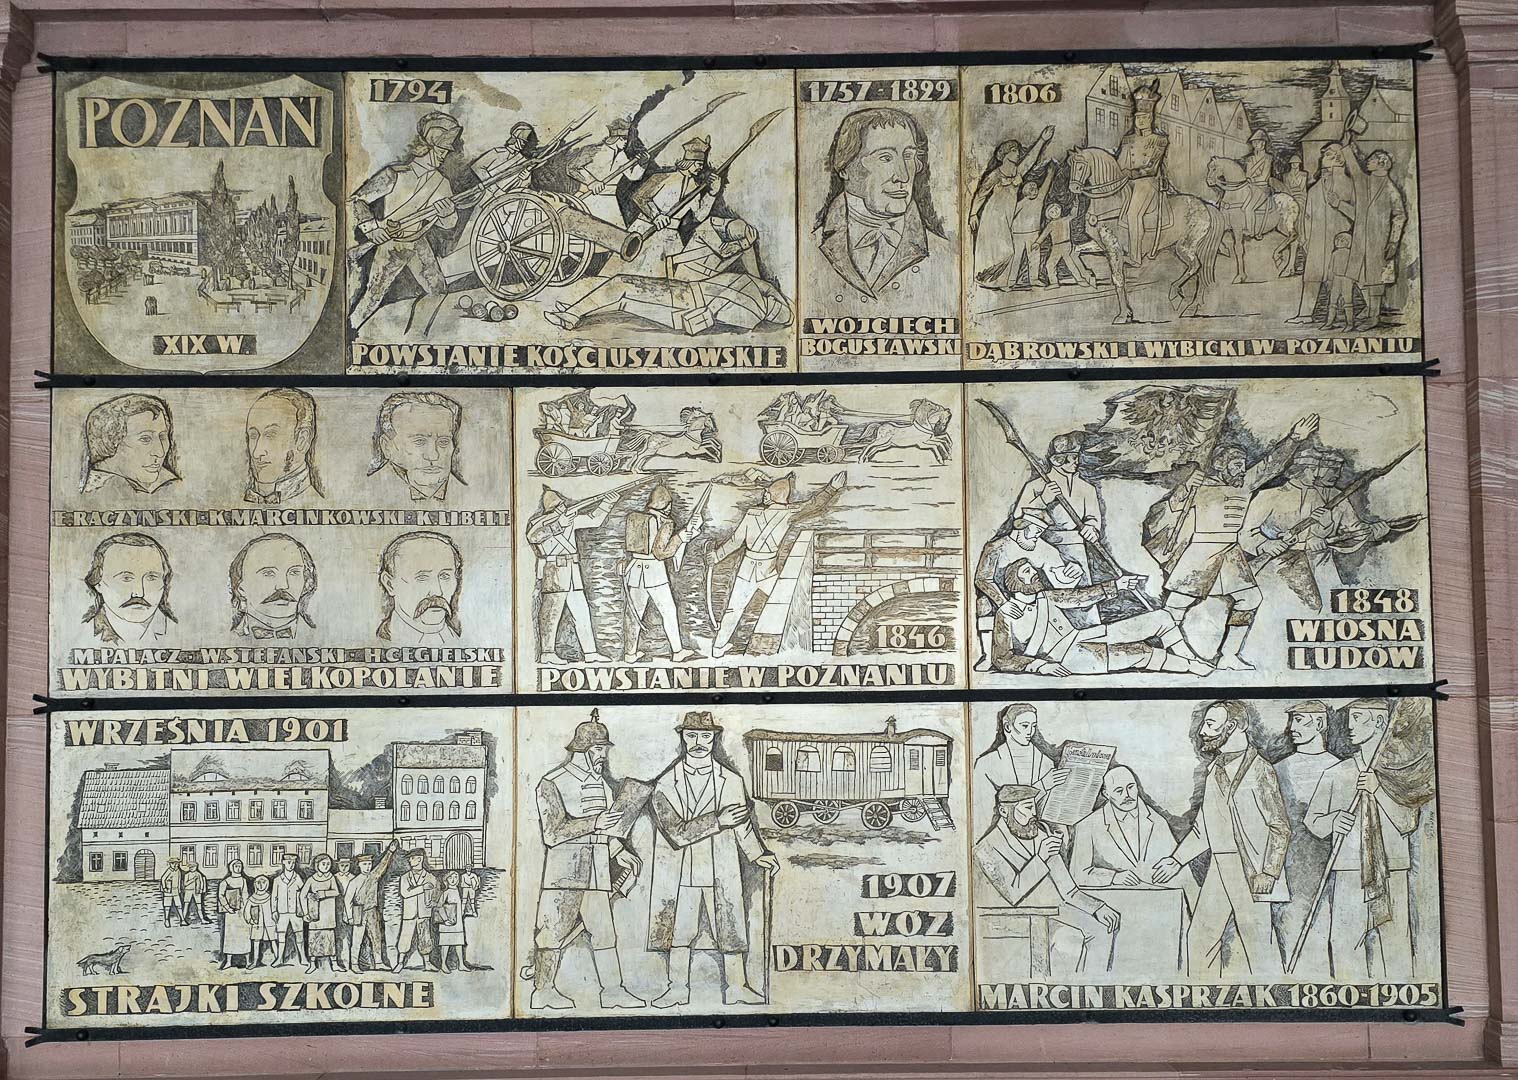 POZNAŃ
XIX W.
1794
POWSTANIE KOŚCIUSZKOWSKIE
1757-1829
WOJCIECH
BOGUSŁAWSKI
1806
DĄBROWSKI I WYBICKI W POZNANIU
E.RACZYŃSKI·K.MARCINKOWSKI·K.LIBELT
M.PALACZ·W.STEFAŃSKI·H.CEGIELSKI
WYBITNI WIELKOPOLANIE
1846
POWSTANIE W POZNANIU
1848
WIOSNA
LUDÓW
WRZEŚNIA 1901
STRAJKI SZKOLNE
1907
WÓZ
DRZYMAŁY
MARCIN KASPRZAK 1860-1905